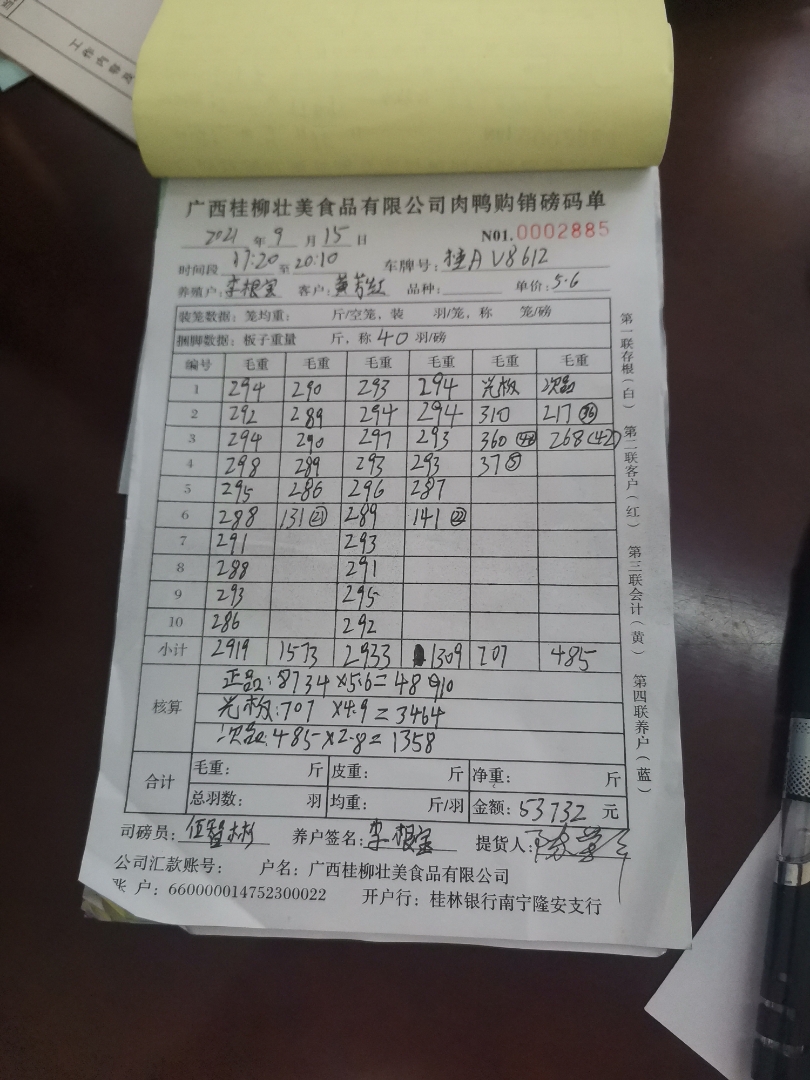 工作内容及
广西桂柳壮美食品有限公司肉鸭购销磅码单
2021 年 9 月 15 日 N01.0002885
时间段 17:20 至 20:10 车牌号: 桂A V8612
养殖户: 李根宝 客户: 黄芳红 品种: 单价: 5.6
装笼数据: 笼均重: 斤/空笼, 装 羽/笼, 称 笼/磅
捆脚数据: 板子重量 斤, 称 40 羽/磅
编号 毛重 毛重 毛重 毛重 毛重 毛重
1 294 290 293 294 光板 次品
2 292 289 294 294 310 217 36
3 294 290 297 293 360 48 268 (42)
4 298 289 293 293 37 5
5 295 286 296 287
6 288 131 21 289 141 22
7 291 293
8 288 291
9 293 295
10 286 292
小计 2919 1573 2933 1309 707 485
核算
正品: 8734 ×5.6= 48910
光板: 707 ×4.9 = 3464
次品: 485×2.8= 1358
合计
毛重: 斤 皮重: 斤 净重: 斤
总羽数: 羽 均重: 斤/羽 金额: 53732 元
司磅员: 伍智彬 养户签名: 李根宝 提货人:
公司汇款账号: 户名: 广西桂柳壮美食品有限公司
账 户: 660000014752300022 开户行: 桂林银行南宁隆安支行
第一联存根(白) 第二联客户(红) 第三联会计(黄) 第四联养户(蓝)